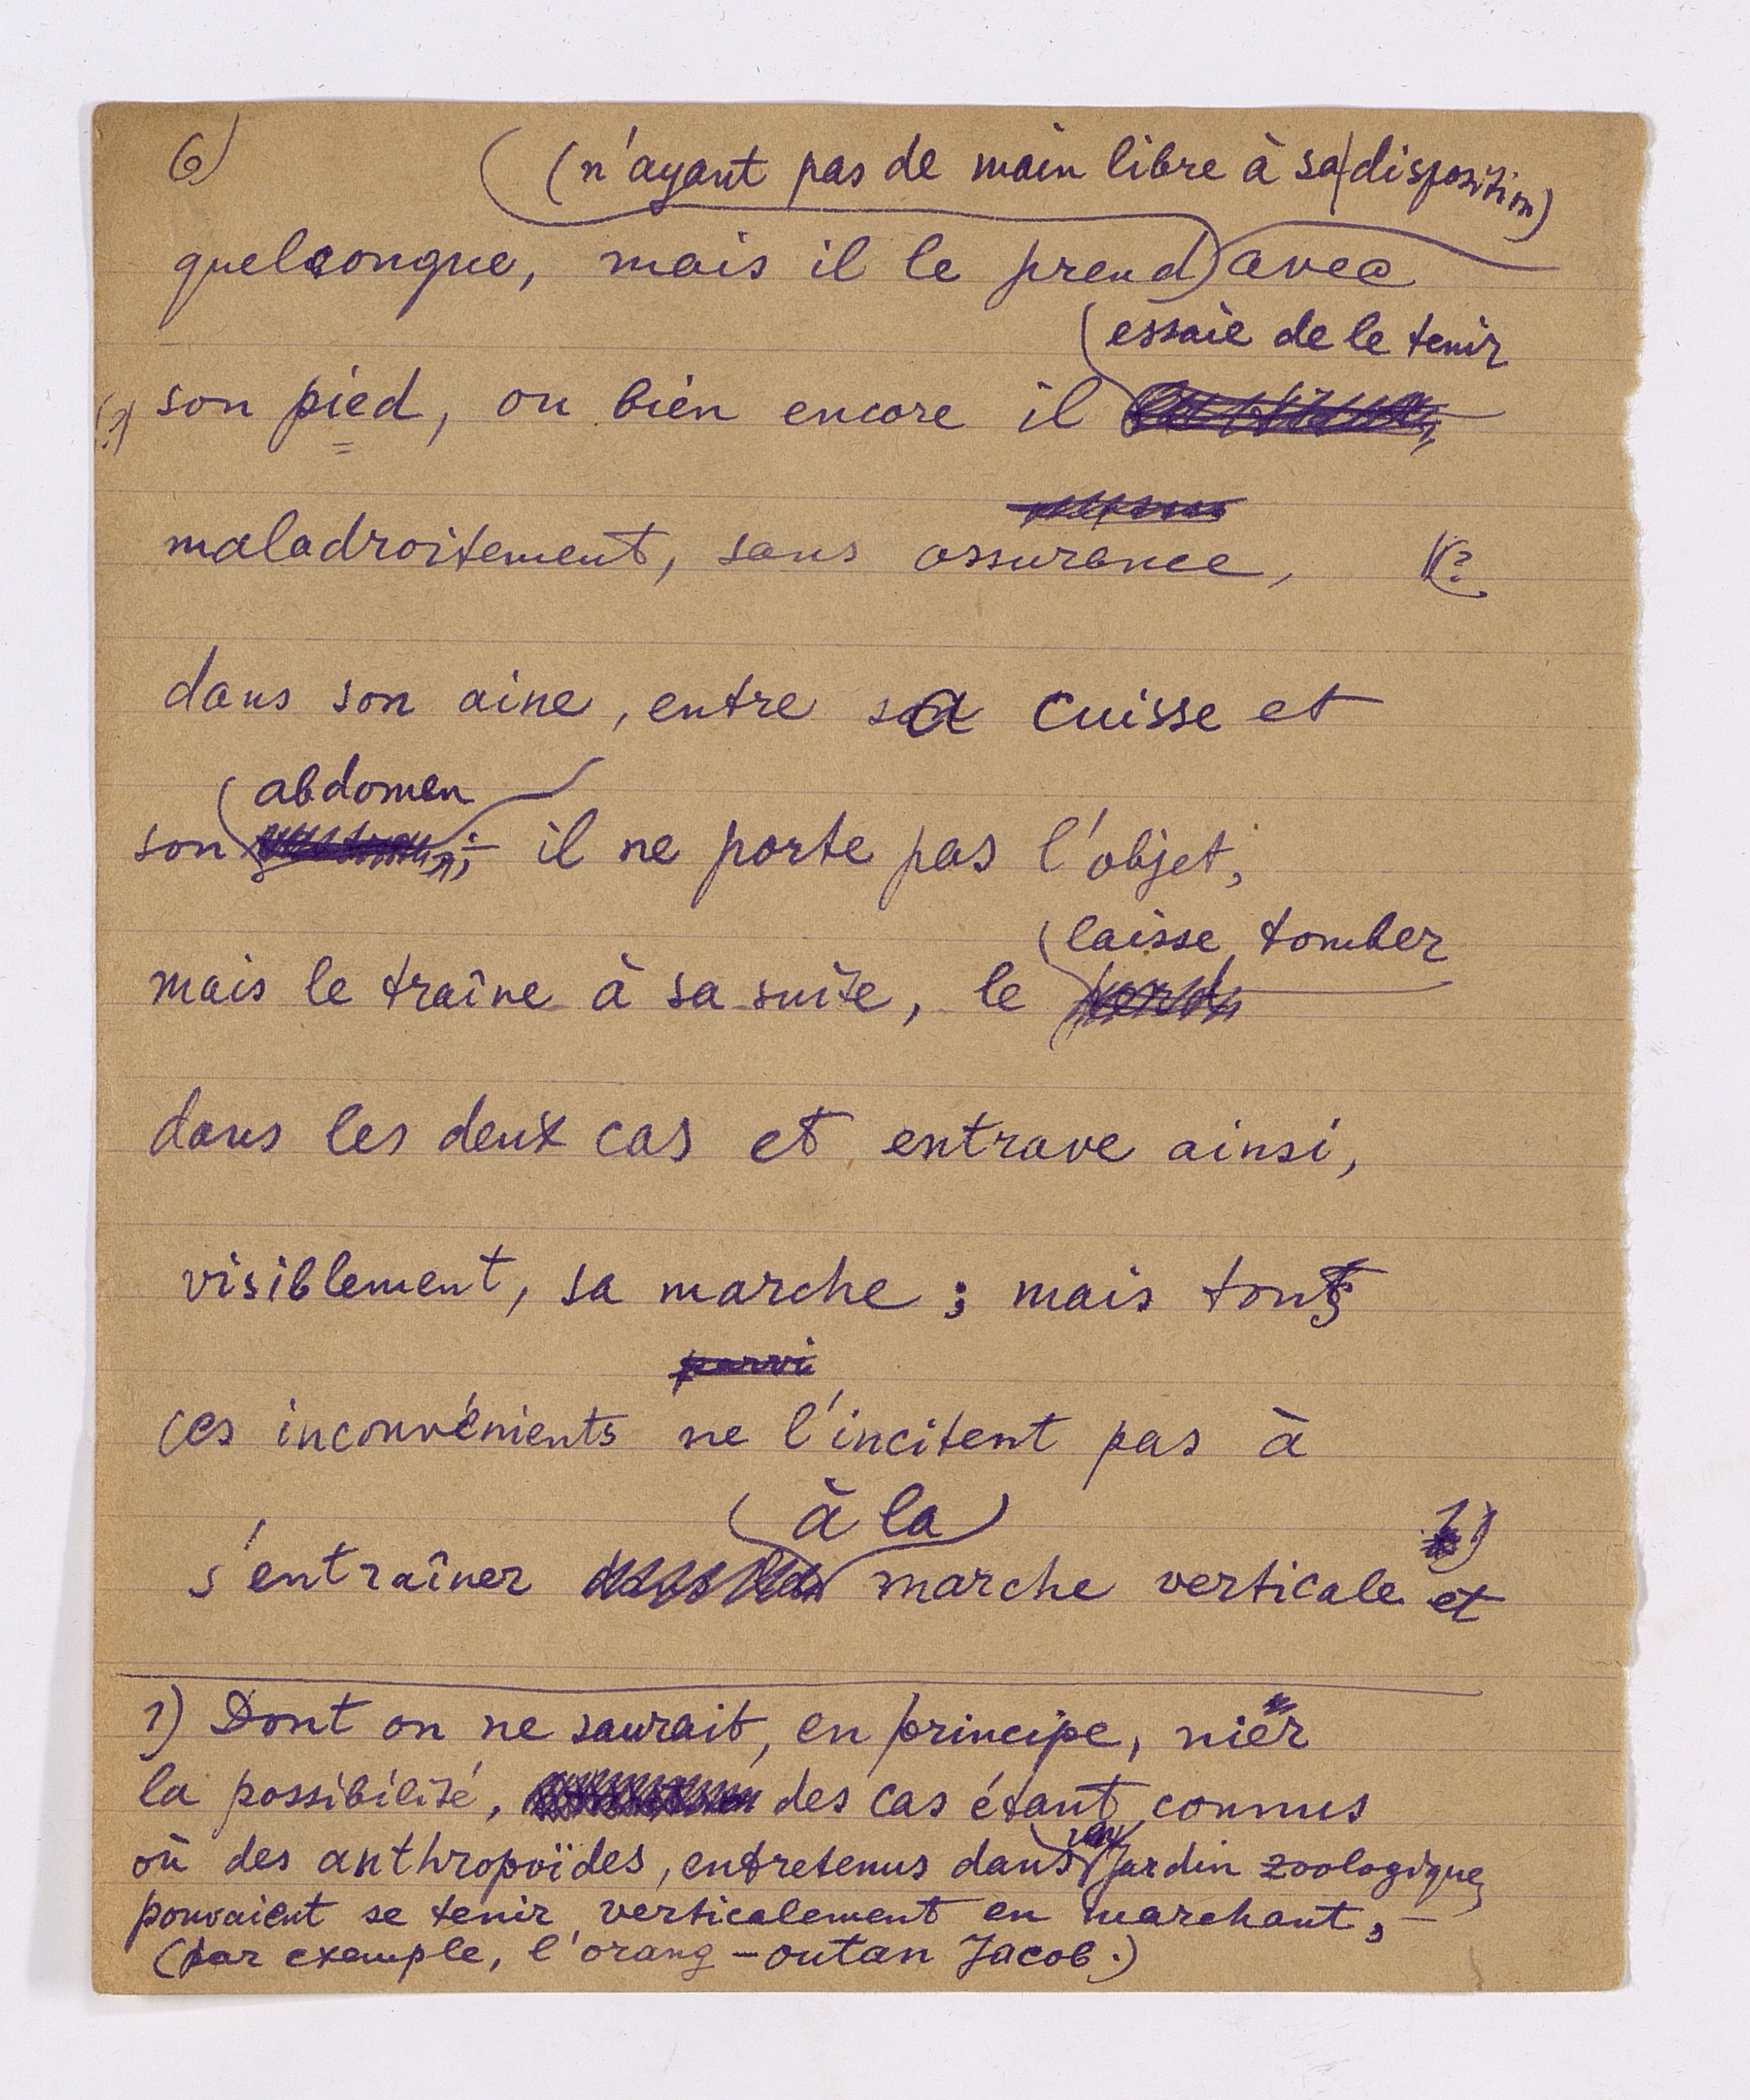 6)
(n'ayant pas de main libre à sa disposition)
quelconque, mais il le prend avec
essaie de le tenir
(?) son pied, ou bien encore il
maladroitement, sans assurance, (?
dans son aine, entre sa cuisse et
abdomen
son il ne porte pas l'objet,
mais le traîne à sa suite, le
laisse tomber
dans les deux cas et entrave ainsi,
visiblement, sa marche ; mais tous
parvi
ces inconvénients ne l'incitent pas à
à la
s'entraîner marche verticale 1) et
1) Dont on ne saurait, en principe, nier
la possibilité, des cas étant connus
où des anthropoïdes, entretenus dans jardin zoologique,
pouvaient se tenir verticalement en marchant, –
(par exemple, l'orang-outan Jacob.)